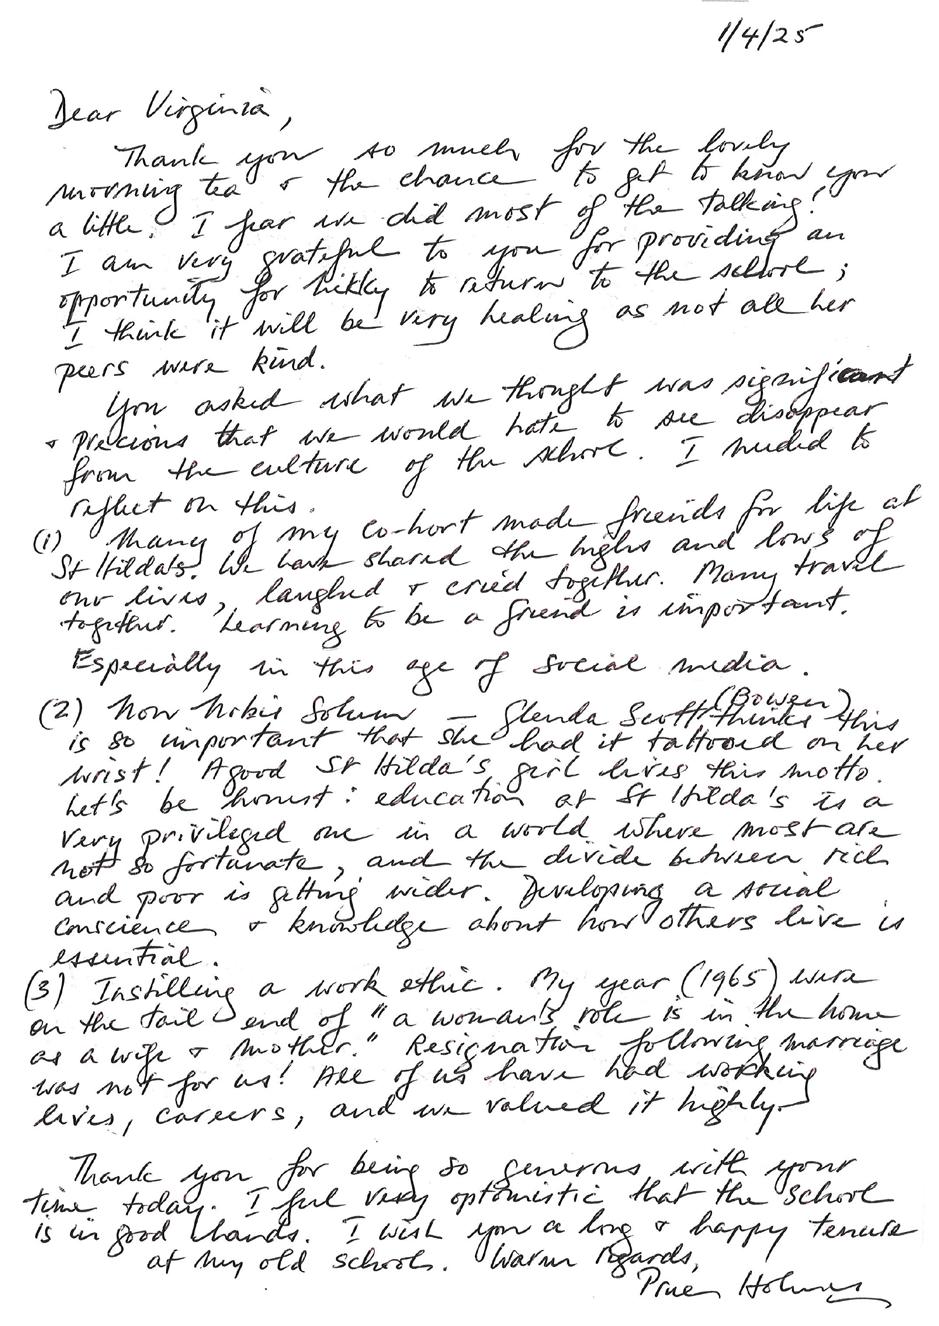 1/4/25
Dear Virginia,
Thank you so much for the lovely
morning tea & the chance to get to know you
a little. I fear we did most of the talking!
I am very grateful to you for providing an
opportunity for Nikky to return to the school;
I think it will be very healing as not all her
peers were kind.
You asked what we thought was significant
& precious that we would hate to see disappear
from the culture of the school. I needed to
reflect on this.
(1) Many of my co-hort made friends for life at
St Hilda's. We have shared the highs and lows of
our lives, laughed & cried together. Many travel
together. Learning to be a friend is important.
Especially in this age of social media.
(2) Non Nobis Solum – Glenda Scott (Bowen) thinks this
is so important that she had it tattooed on her
wrist! A good St Hilda's girl lives this motto.
Let's be honest: education at St Hilda's is a
very privileged one in a world where most are
not so fortunate, and the divide between rich
and poor is getting wider. Developing a social
conscience & knowledge about how others live is
essential.
(3) Instilling a work ethic. My year (1965) were
on the tail end of "a woman's role is in the home
as a wife & mother." Resignation following marriage
was not for us! All of us have had working
lives, careers, and we valued it highly.
Thank you for being so generous with your
time today. I feel very optomistic that the school
is in good hands. I wish you a long & happy tenure
at my old school. Warm regards,
Prue Holmes